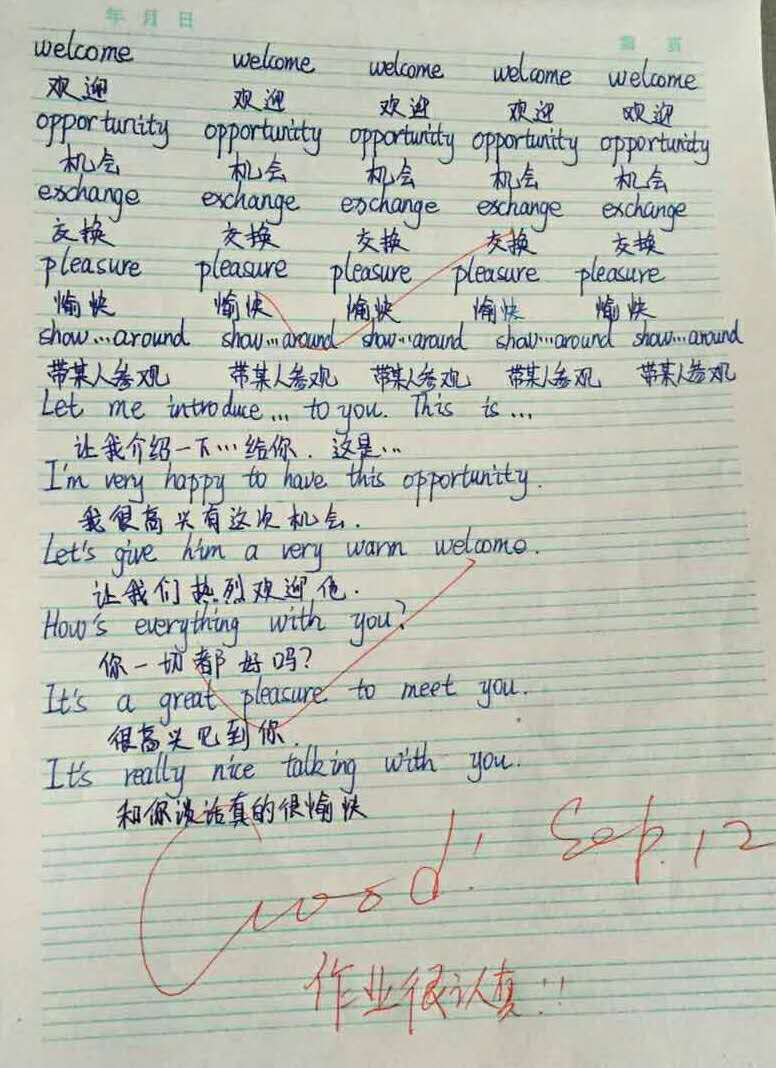 年 月 日
第 页
welcome welcome welcome welcome welcome
欢迎 欢迎 欢迎 欢迎 欢迎
opportunity opportunity opportunity opportunity opportunity
机会 机会 机会 机会 机会
exchange exchange exchange exchange exchange
交换 交换 交换 交换 交换
pleasure pleasure pleasure pleasure pleasure
愉快 愉快 愉快 愉快 愉快
show...around show...around show...around show...around show...around
带某人参观 带某人参观 带某人参观 带某人参观 带某人参观
Let me introduce... to you. This is ...
让我介绍一下…给你. 这是…
I'm very happy to have this opportunity.
我很高兴有这次机会.
Let's give him a very warm welcome.
让我们热烈欢迎他.
How's everything with you?
你一切都好吗?
It's a great pleasure to meet you.
很高兴见到你.
It's really nice talking with you.
和你谈话真的很愉快
Good! Sep. 12
作业很认真!!